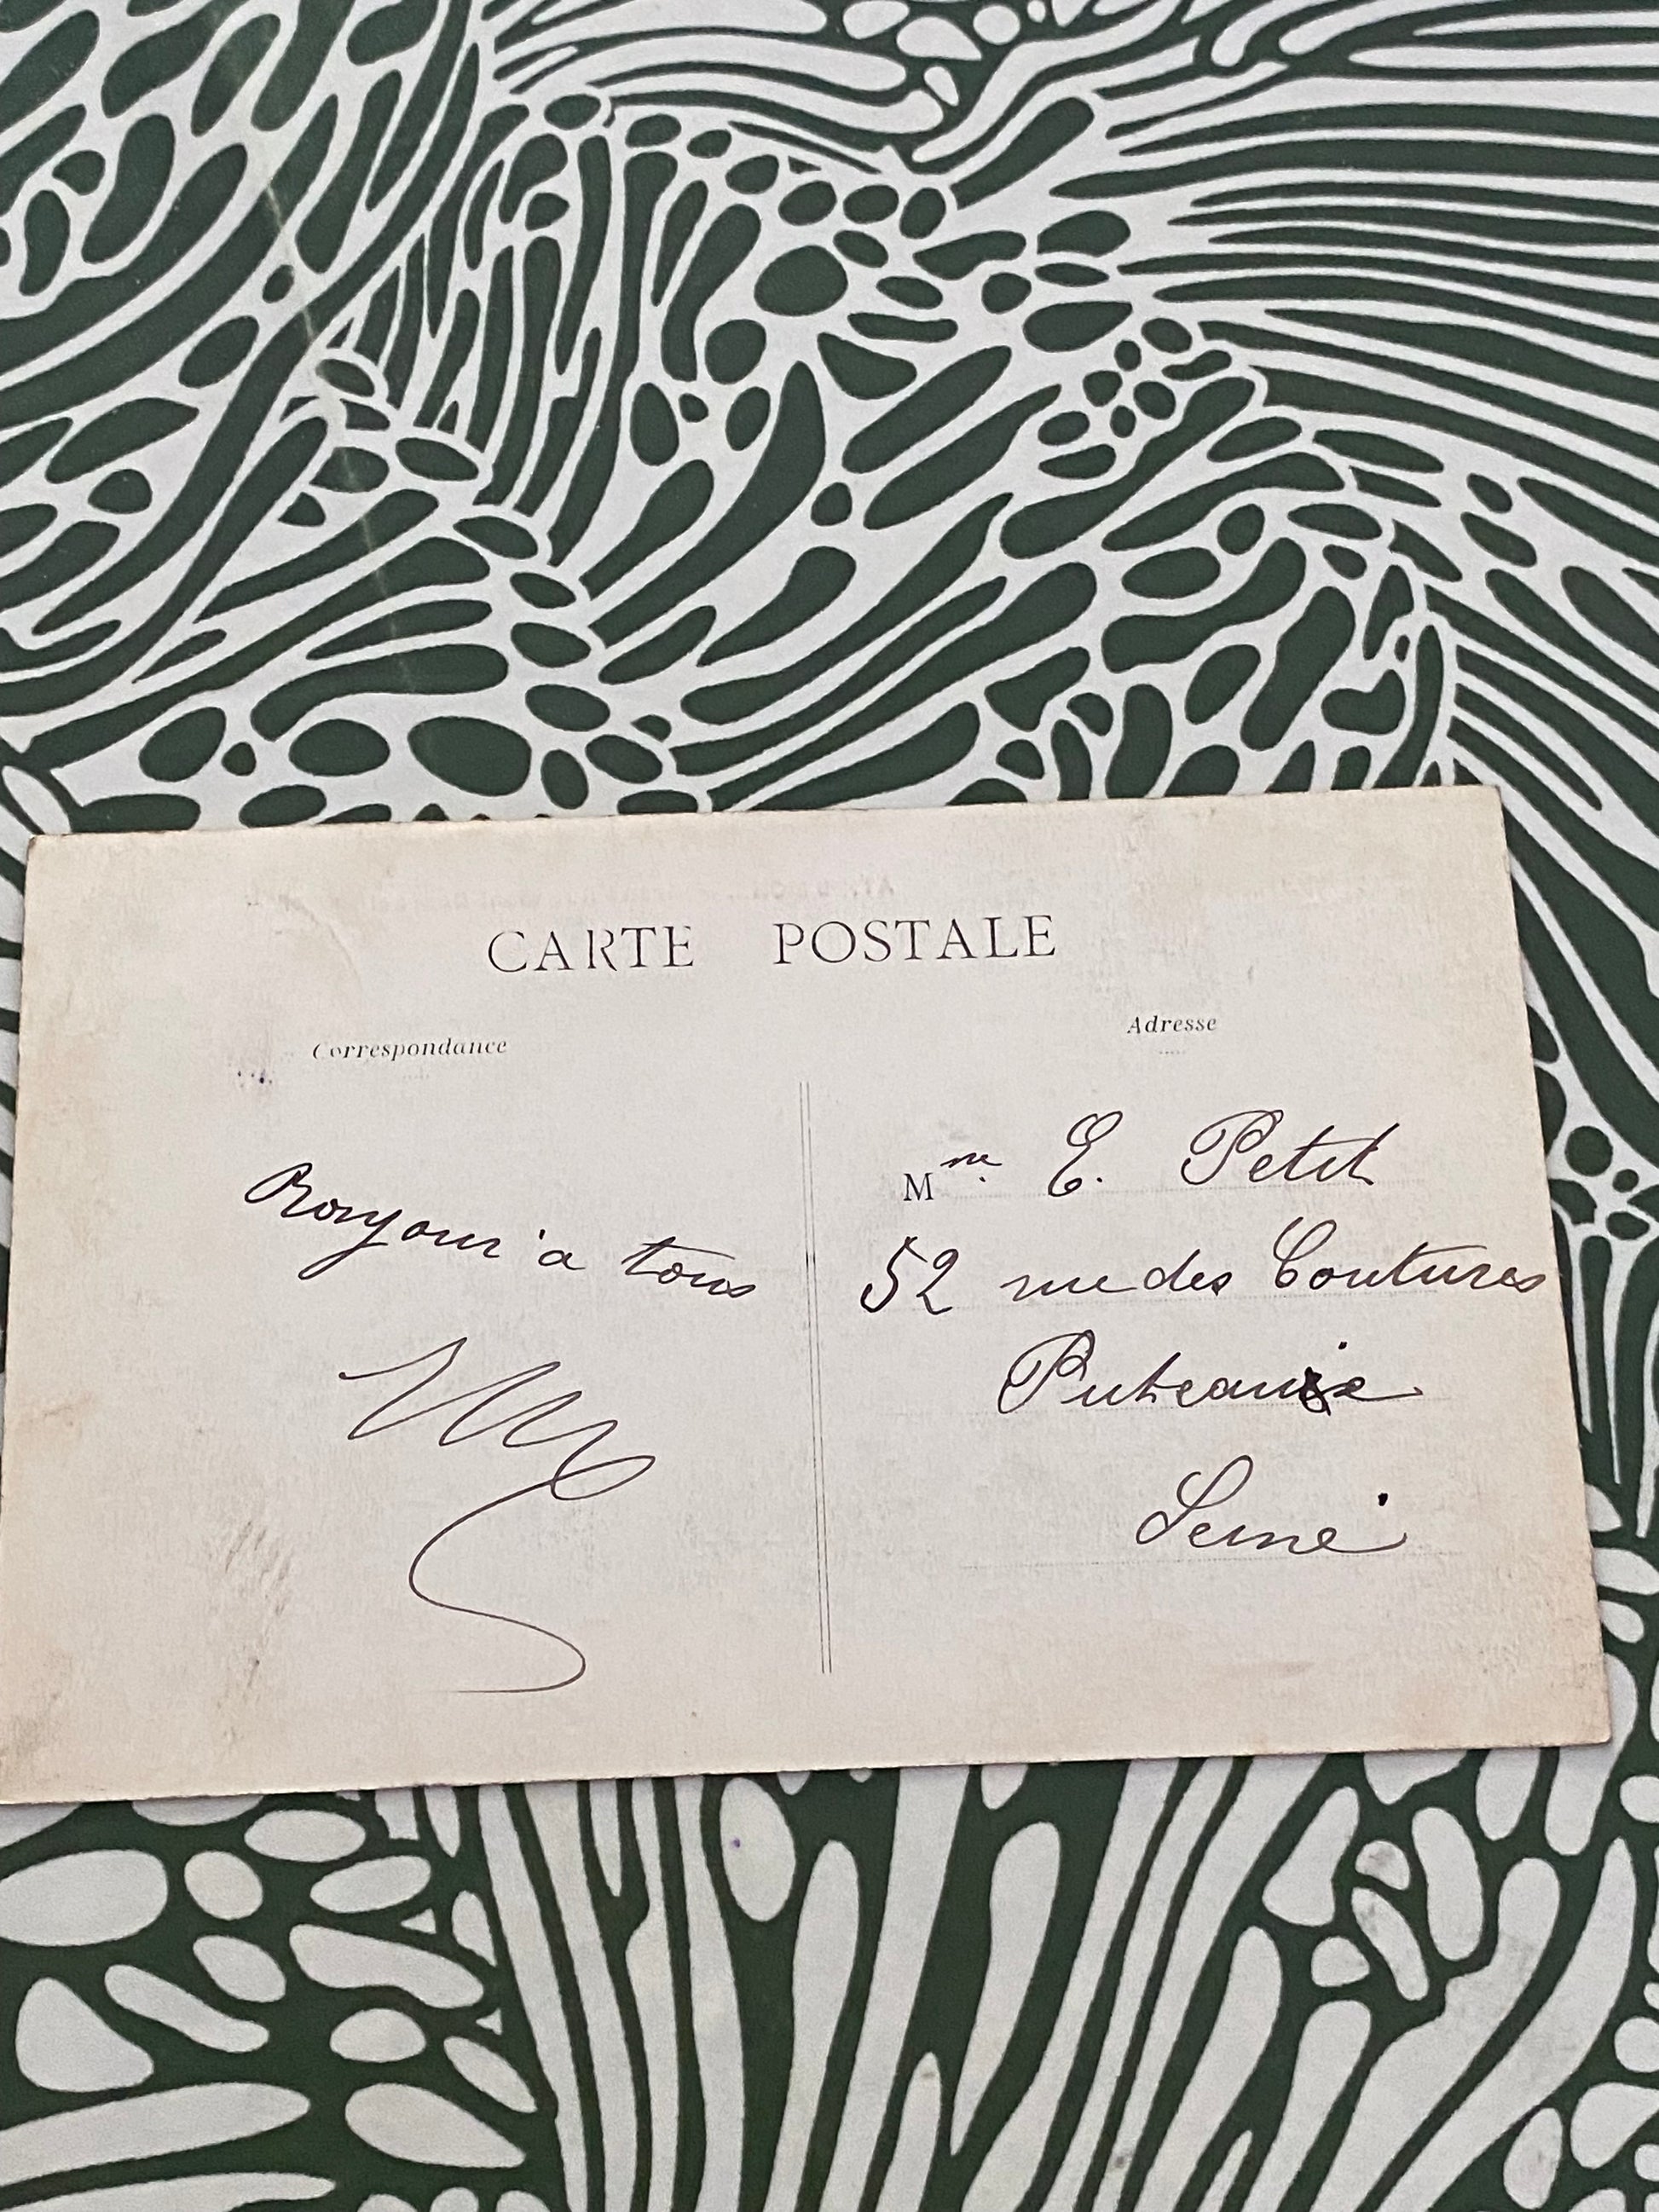 CARTE POSTALE
Correspondance
Adresse
Bonjour à tous
Mme E. Petit
52 rue des Coutures
Puteaux
Seine